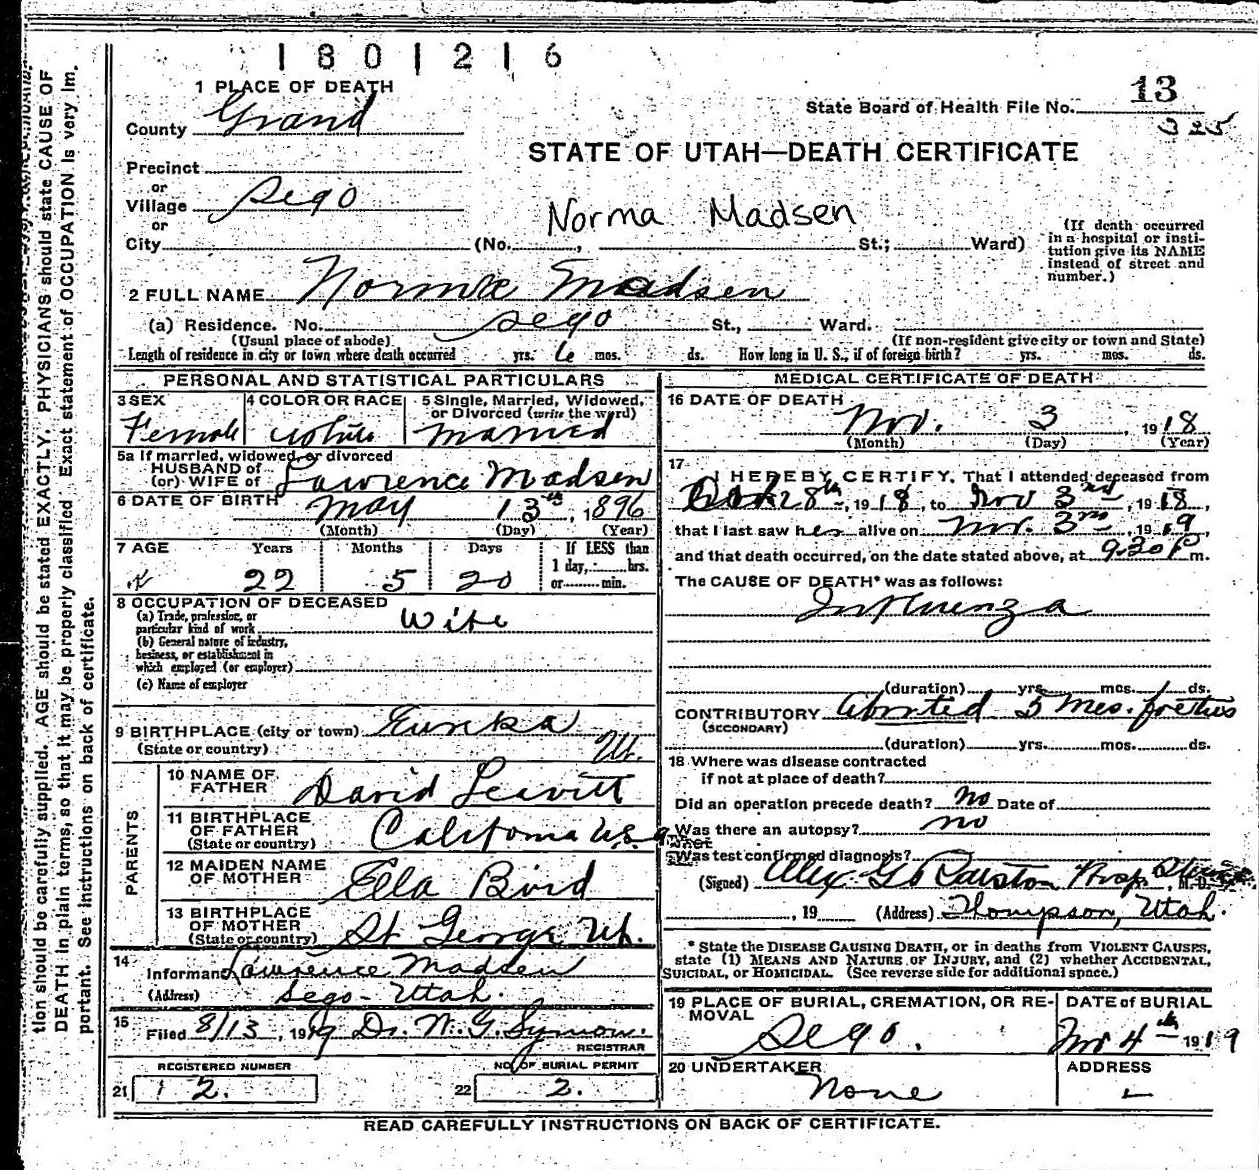 1801216
1 PLACE OF DEATH
13
State Board of Health File No.
325
County Grand
STATE OF UTAH—DEATH CERTIFICATE
Precinct
or
Village Sego
or
Norma Madsen
City (No. , St.; Ward)
(If death occurred in a hospital or insti-
tution give its NAME
instead of street and
number.)
2 FULL NAME Norma Madsen
(a) Residence. No. Sego St., Ward.
(Usual place of abode) (If non-resident give city or town and State)
Length of residence in city or town where death occurred yrs. 6 mos. ds. How long in U. S., if of foreign birth? yrs. mos. ds.
PERSONAL AND STATISTICAL PARTICULARS
3 SEX Female
4 COLOR OR RACE White
5 Single, Married, Widowed,
or Divorced (write the word)
Married
5a If married, widowed, or divorced
HUSBAND of
(or) WIFE of Lawrence Madsen
6 DATE OF BIRTH May 13th, 1896
(Month) (Day) (Year)
7 AGE Years Months Days If LESS than
1 day, hrs.
or min.
22 5 20
8 OCCUPATION OF DECEASED
(a) Trade, profession, or
particular kind of work Wife
(b) General nature of industry,
business, or establishment in
which employed (or employer)
(c) Name of employer
9 BIRTHPLACE (city or town) Eureka
(State or country) Ut.
PARENTS
10 NAME OF
FATHER David Leavitt
11 BIRTHPLACE
OF FATHER California U.S.a
(State or country)
12 MAIDEN NAME
OF MOTHER Ella Bird
13 BIRTHPLACE
OF MOTHER St George Ut.
(State or country)
14
Informant Lawrence Madsen
(Address) Sego - Utah.
15 Filed 8/13, 1919 Dr. W. G. Symon.
REGISTRAR
REGISTERED NUMBER NO. OF BURIAL PERMIT
21 2. 22 2.
MEDICAL CERTIFICATE OF DEATH
16 DATE OF DEATH
Nov. 3, 1918
(Month) (Day) (Year)
17
I HEREBY CERTIFY, That I attended deceased from
Oct 28th, 1918, to Nov 3rd, 1918,
that I last saw her alive on Nov. 3rd, 1919
and that death occurred, on the date stated above, at 9-30 P m.
The CAUSE OF DEATH* was as follows:
Influenza
(duration) yrs. mos. ds.
CONTRIBUTORY Aborted 5 Mos. foetus
(SECONDARY)
(duration) yrs. mos. ds.
18 Where was disease contracted
if not at place of death?
Did an operation precede death? No Date of
Was there an autopsy? no
Was test confirmed diagnosis?
(Signed) Alex G. Ralston , M. D.
, 19 (Address) Thompson, Utah.
* State the DISEASE CAUSING DEATH, or in deaths from VIOLENT CAUSES,
state (1) MEANS AND NATURE OF INJURY, and (2) whether ACCIDENTAL,
SUICIDAL, or HOMICIDAL. (See reverse side for additional space.)
19 PLACE OF BURIAL, CREMATION, OR RE-
MOVAL
Sego.
DATE of BURIAL
Nov 4th 1919
20 UNDERTAKER
None
ADDRESS
READ CAREFULLY INSTRUCTIONS ON BACK OF CERTIFICATE.
tion should be carefully supplied. AGE should be stated EXACTLY. PHYSICIANS should state CAUSE OF
DEATH in plain terms, so that it may be properly classified. Exact statement of OCCUPATION is very im-
portant. See instructions on back of certificate.